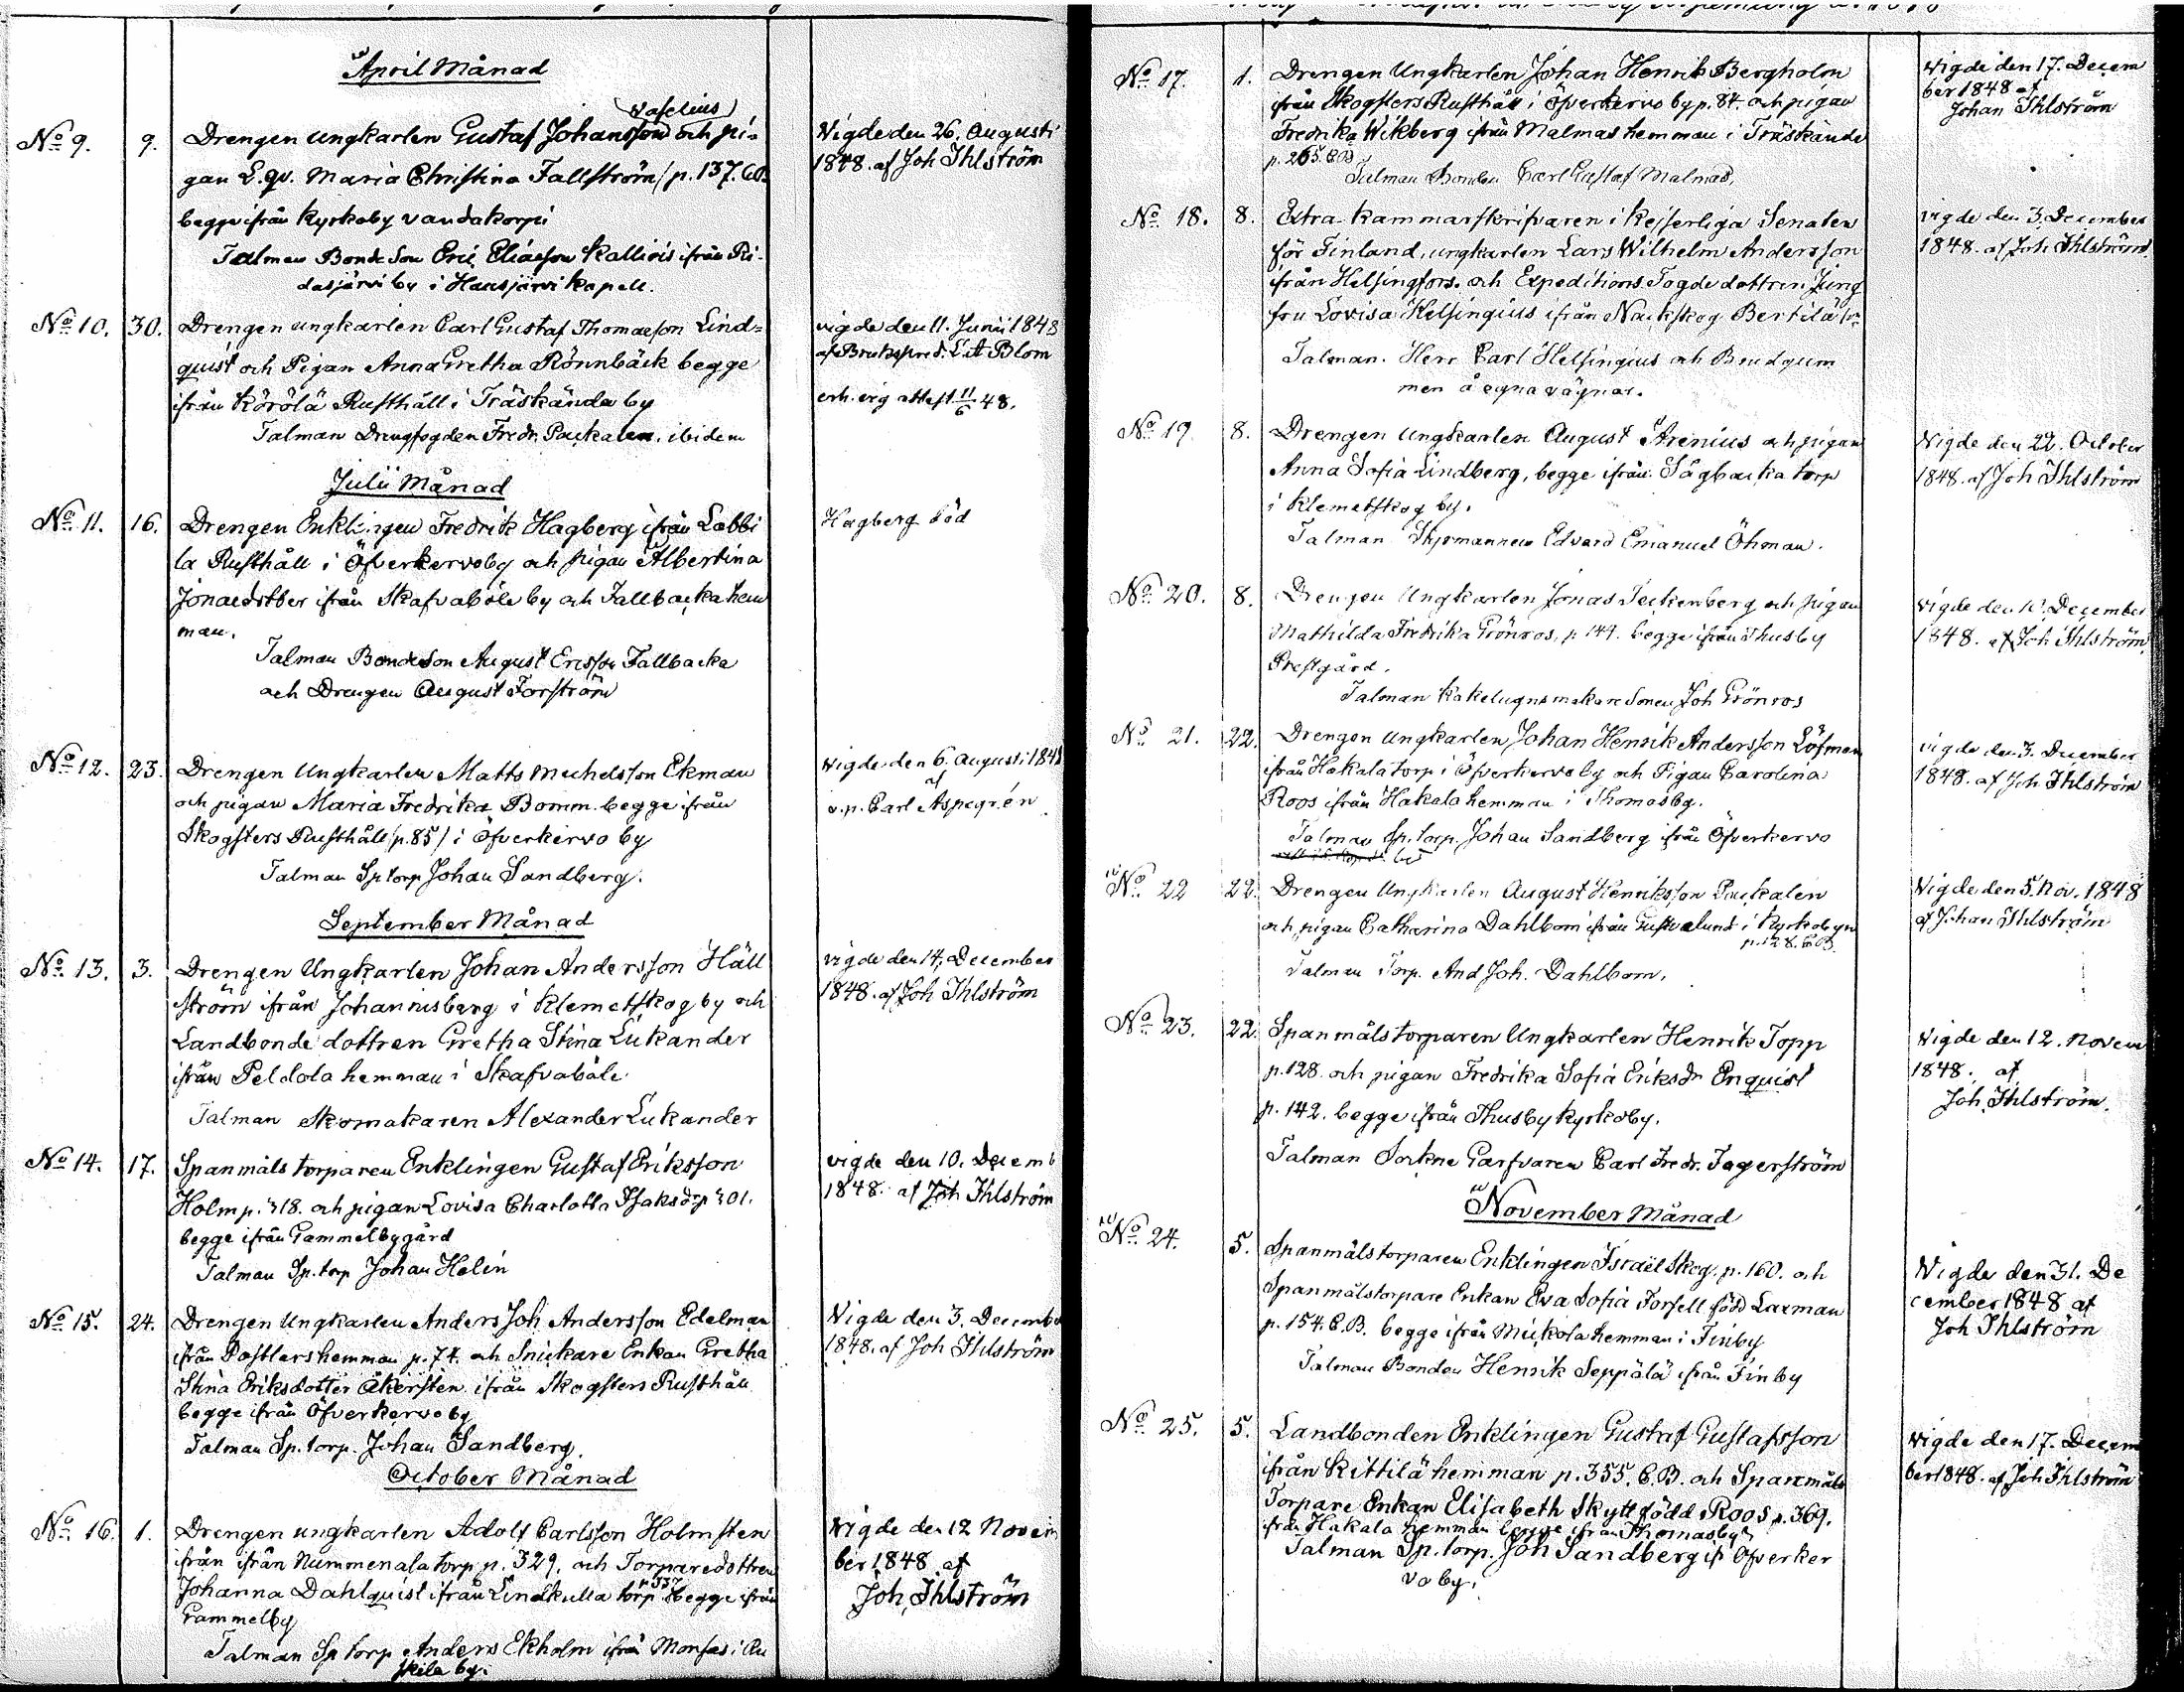 April Månad
Waselius
No 9. 9. Drengen ungkarlen Gustaf Johansson och pi-
gan E.qv. Maria Christina Fallström /p. 137.
begge ifrån Kyrkoby Vandakorpi
Talman Bonde Son Eric Eliasson Kalliois ifrån Ri-
dasjärvi by i Hausjärvi Kapell.
Vigde den 26. Augusti
1848. af Joh Ihlström
No 10. 30. Drengen ungkarlen Carl Gustaf Thomasson Lind=
quist och Pigan Anna Gretha Rönnbäck begge
ifrån Körölä Rusthåll i Träskända by
Talman Drengfogden Fredr. Packalen. ibidem
vigde den 11. Junii 1848
af Brukspred. Blom
erh. vig attest 11/6 48.
Julii Månad
No 11. 16. Drengen Enklingen Fredrik Hagberg ifrån Labbi
la Rusthåll i Öfverkervoby och pigan Albertina
Jonaedotter ifrån Skafvaböle by och Fallbacka hem
man.
Talman Bonde Son August Ericsson Fallbacka
och Drengen August Forström
Hagberg död
No 12. 23. Drengen Ungkarlen Matts Michelsson Ekman
och pigan Maria Fredrika Bomm. begge ifrån
Skogsters Rusthåll /p. 85/ i Öfverkervo by
Talman Sp torp Johan Sandberg.
Vigde den 6. Augusti 1848
af
v.p. Carl Aspegrén
September Månad
No 13. 3. Drengen Ungkarlen Johan Andersson Häll
ström ifrån Johannisberg i Klemetskog by och
Landbonde dottren Gretha Stina Lukander
ifrån Peldola hemman i Skafvaböle
Talman Skomakaren Alexander Lukander
vigde den 14. December
1848. af Joh Ihlström
No 14. 17. Spanmåls torparen Enklingen Gustaf Eriksson
Holm p. 318. och pigan Lovisa Charlotta Isaksdr p 301.
begge ifrån Gammelbygård
Talman Sp. torp Johan Helin
vigde den 10. Decemb
1848. af Joh Ihlström
No 15. 24. Drengen Ungkarlen Anders Joh Andersson Edelman
ifrån Postlars hemman p. 74. och Snickare Enkan Gretha
Stina Eriksdotter Åkersten ifrån Skogsters Rusthåll
begge ifrån Öfverkervo by
Talman Sp. torp. Johan Sandberg.
Vigde den 3. Decembe
1848. af Joh Ihlström
October Månad
No 16. 1. Drengen ungkarlen Adolf Carlsson Holmsten
ifrån ifrån Nummenala torp p. 329. och Torparedottren
Johanna Dahlquist ifrån Lindkulla torp p 337 begge ifrån
Gammelby
Talman Sp torp Anders Ekholm ifrån Monsas i Ru
skila by.
Vigde den 12 Novem
ber 1848 af
Joh, Ihlström
No 17. 1. Drengen Ungkarlen Johan Henrik Bergholm
ifrån Skogsters Rusthåll i Öfverkervo by p. 84. och pigan
Fredrika Wikberg ifrån Malmas hemman i Träskända
p. 265. C.B.
Talman Bonden Carl Gustaf Malmas.
Vigde den 17. Decem
ber 1848 af
Johan Ihlström
No 18. 8. Extra Kammarskrifvaren i Kejserliga Senaten
för Finland, ungkarlen Lars Wilhelm Andersson
ifrån Helsingfors. och Expeditions Fogde dottren Jung
fru Lovisa Helsingius ifrån Nackskog Bertila
Talman. Herr Carl Helsingius och Brudgum
men å egna vägnar.
vigde den 3. December
1848. af Joh Ihlström.
No 19. 8. Drengen Ungkarlen August Arenius och pigan
Anna Sofia Lindberg, begge ifrån Sågbacka torp
i Klemetskog by.
Talman Styrmannen Edvard Emanuel Öhman.
Vigde den 22. October
1848. af Joh Ihlström
No 20. 8. Drengen Ungkarlen Jonas Teckenberg och pigan
Mathilda Fredrika Grönros, p 149. begge ifrån Thusby
Prestgård.
Talman Kakelugnsmakare Sonen Joh Grönros
vigde den 10. December
1848. af Joh Ihlström.
No 21. 22. Drengen Ungkarlen Johan Henrik Andersson Löfman
ifrån Hakala torp i Öfverkervo by och Pigan Carolina
Roos ifrån Hakala hemman i Thomasby.
Talman Sp. torp. Johan Sandberg ifrån Öfverkervo
by
vigde den 3. December
1848. af Joh Ihlström
No 22 22. Drengen Ungkarlen August Henriksson Packalén
och pigan Catharina Dahlbom ifrån Gustavelund i Kyrkobyn
p. 128. C.B.
Talman Torp. And Joh. Dahlbom.
Vigde den 5. Nov. 1848
af Johan Ihlström
No 23. 22. Spanmåls torparen Ungkarlen Henrik Topp
p. 128. och pigan Fredrika Sofia Eriksdr Enquist
p. 142. begge ifrån Thusby kyrkoby.
Talman Sockne Garfvaren Carl Fredr. Fagerström
Vigde den 12. Novem
1848. af
Joh. Ihlström.
November Månad
No 24. 5. Spanmålstorparen Enklingen Israël Skog. p. 160. och
Spanmålstorpare Enkan Eva Sofia Forsell född Laxman
p. 154. C.B. begge ifrån Mickola hemman i Finby
Talman Bonden Henrik Seppälä ifrån Finby
Vigde den 31. De
cember 1848 af
Joh Ihlström
No 25. 5. Landbonden Enklingen Gustaf Gustafsson
ifrån Kittilä hemman p. 355. C.B. och Spanmåls
Torpare Enkan Elisabeth Skytt född Roos p. 369.
ifrån Hakala hemman begge ifrån Thomasby
Talman Sp. torp. Joh Sandberg if Öfverker
vo by.
Vigde den 17. Decem
ber 1848. af Joh Ihlström